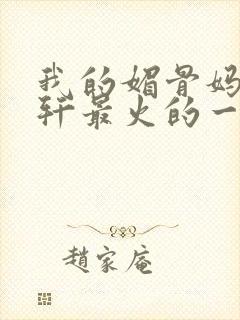 我的媚骨妈
轩最火的一
趙家庵